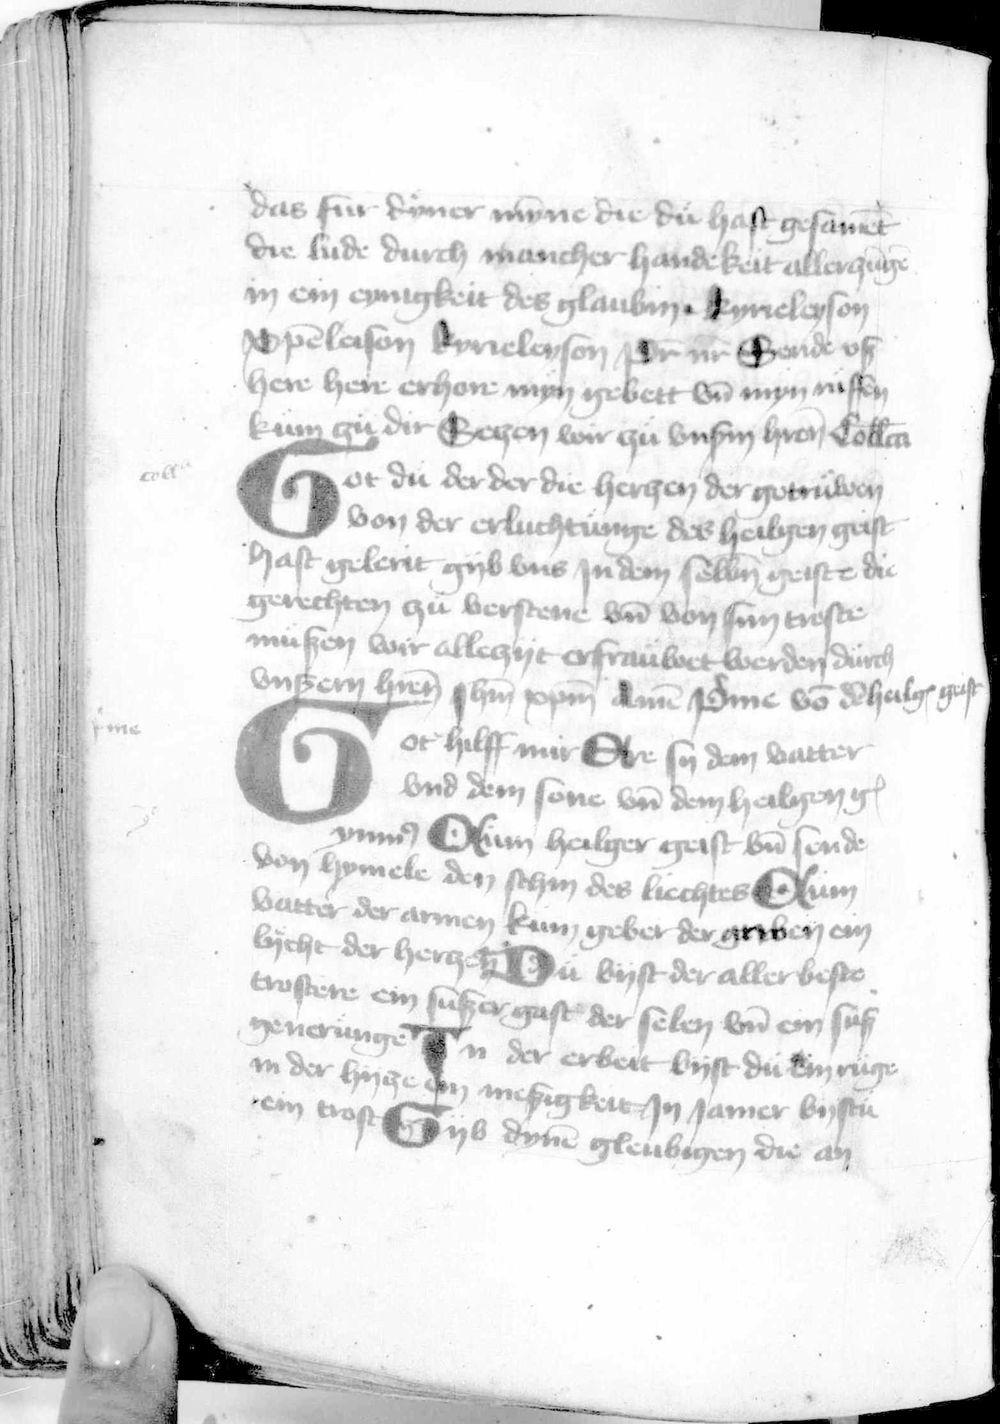 das fur dyner mȳne die dü hast gesamēt
die lüde durch mancher handekeit aller zūgē
in ein eynigkeit des glaubin. kyrieleyson
xp̄eleison kyrieleyson Pr̄ nr̄ Sende vß
here here erhore mÿn gebett vn̄ mÿn rüffen
küm zü dir Beten wir zü vnßm hrēn Coll̄ca
coll^a
Got dü der der die herzen der getrüwen
von der erluchtünge des heilgen geist
hast gelerit gÿb vns In dem selbn̄ geiste die
gerechten zü verstene vn̄ von sim troste
müßen wir allezÿt erfrauwet werden dürch
vnßern hrēn Ihm̄ xpm̄ Amē Pme vō dē heilgē geist
pme
Got hilff mir Ere sÿ dem vatter
vnd dem sone vn̄ dem heilgen g
ymn⁹ Küm heilger geist vn̄ sende
von hymele den schin des liechtes Küm
vatter der armen kum geber der gaben ein
lÿcht der herzen Dü bÿst der aller beste
trostere ein süßer gast der selen vn̄ ein süß
generünge In der erbeit bÿst dü ein rüge
in der hytze ein meßigkeit In Jamer bÿstü
ein trost Gÿb dynē gleubigen die an